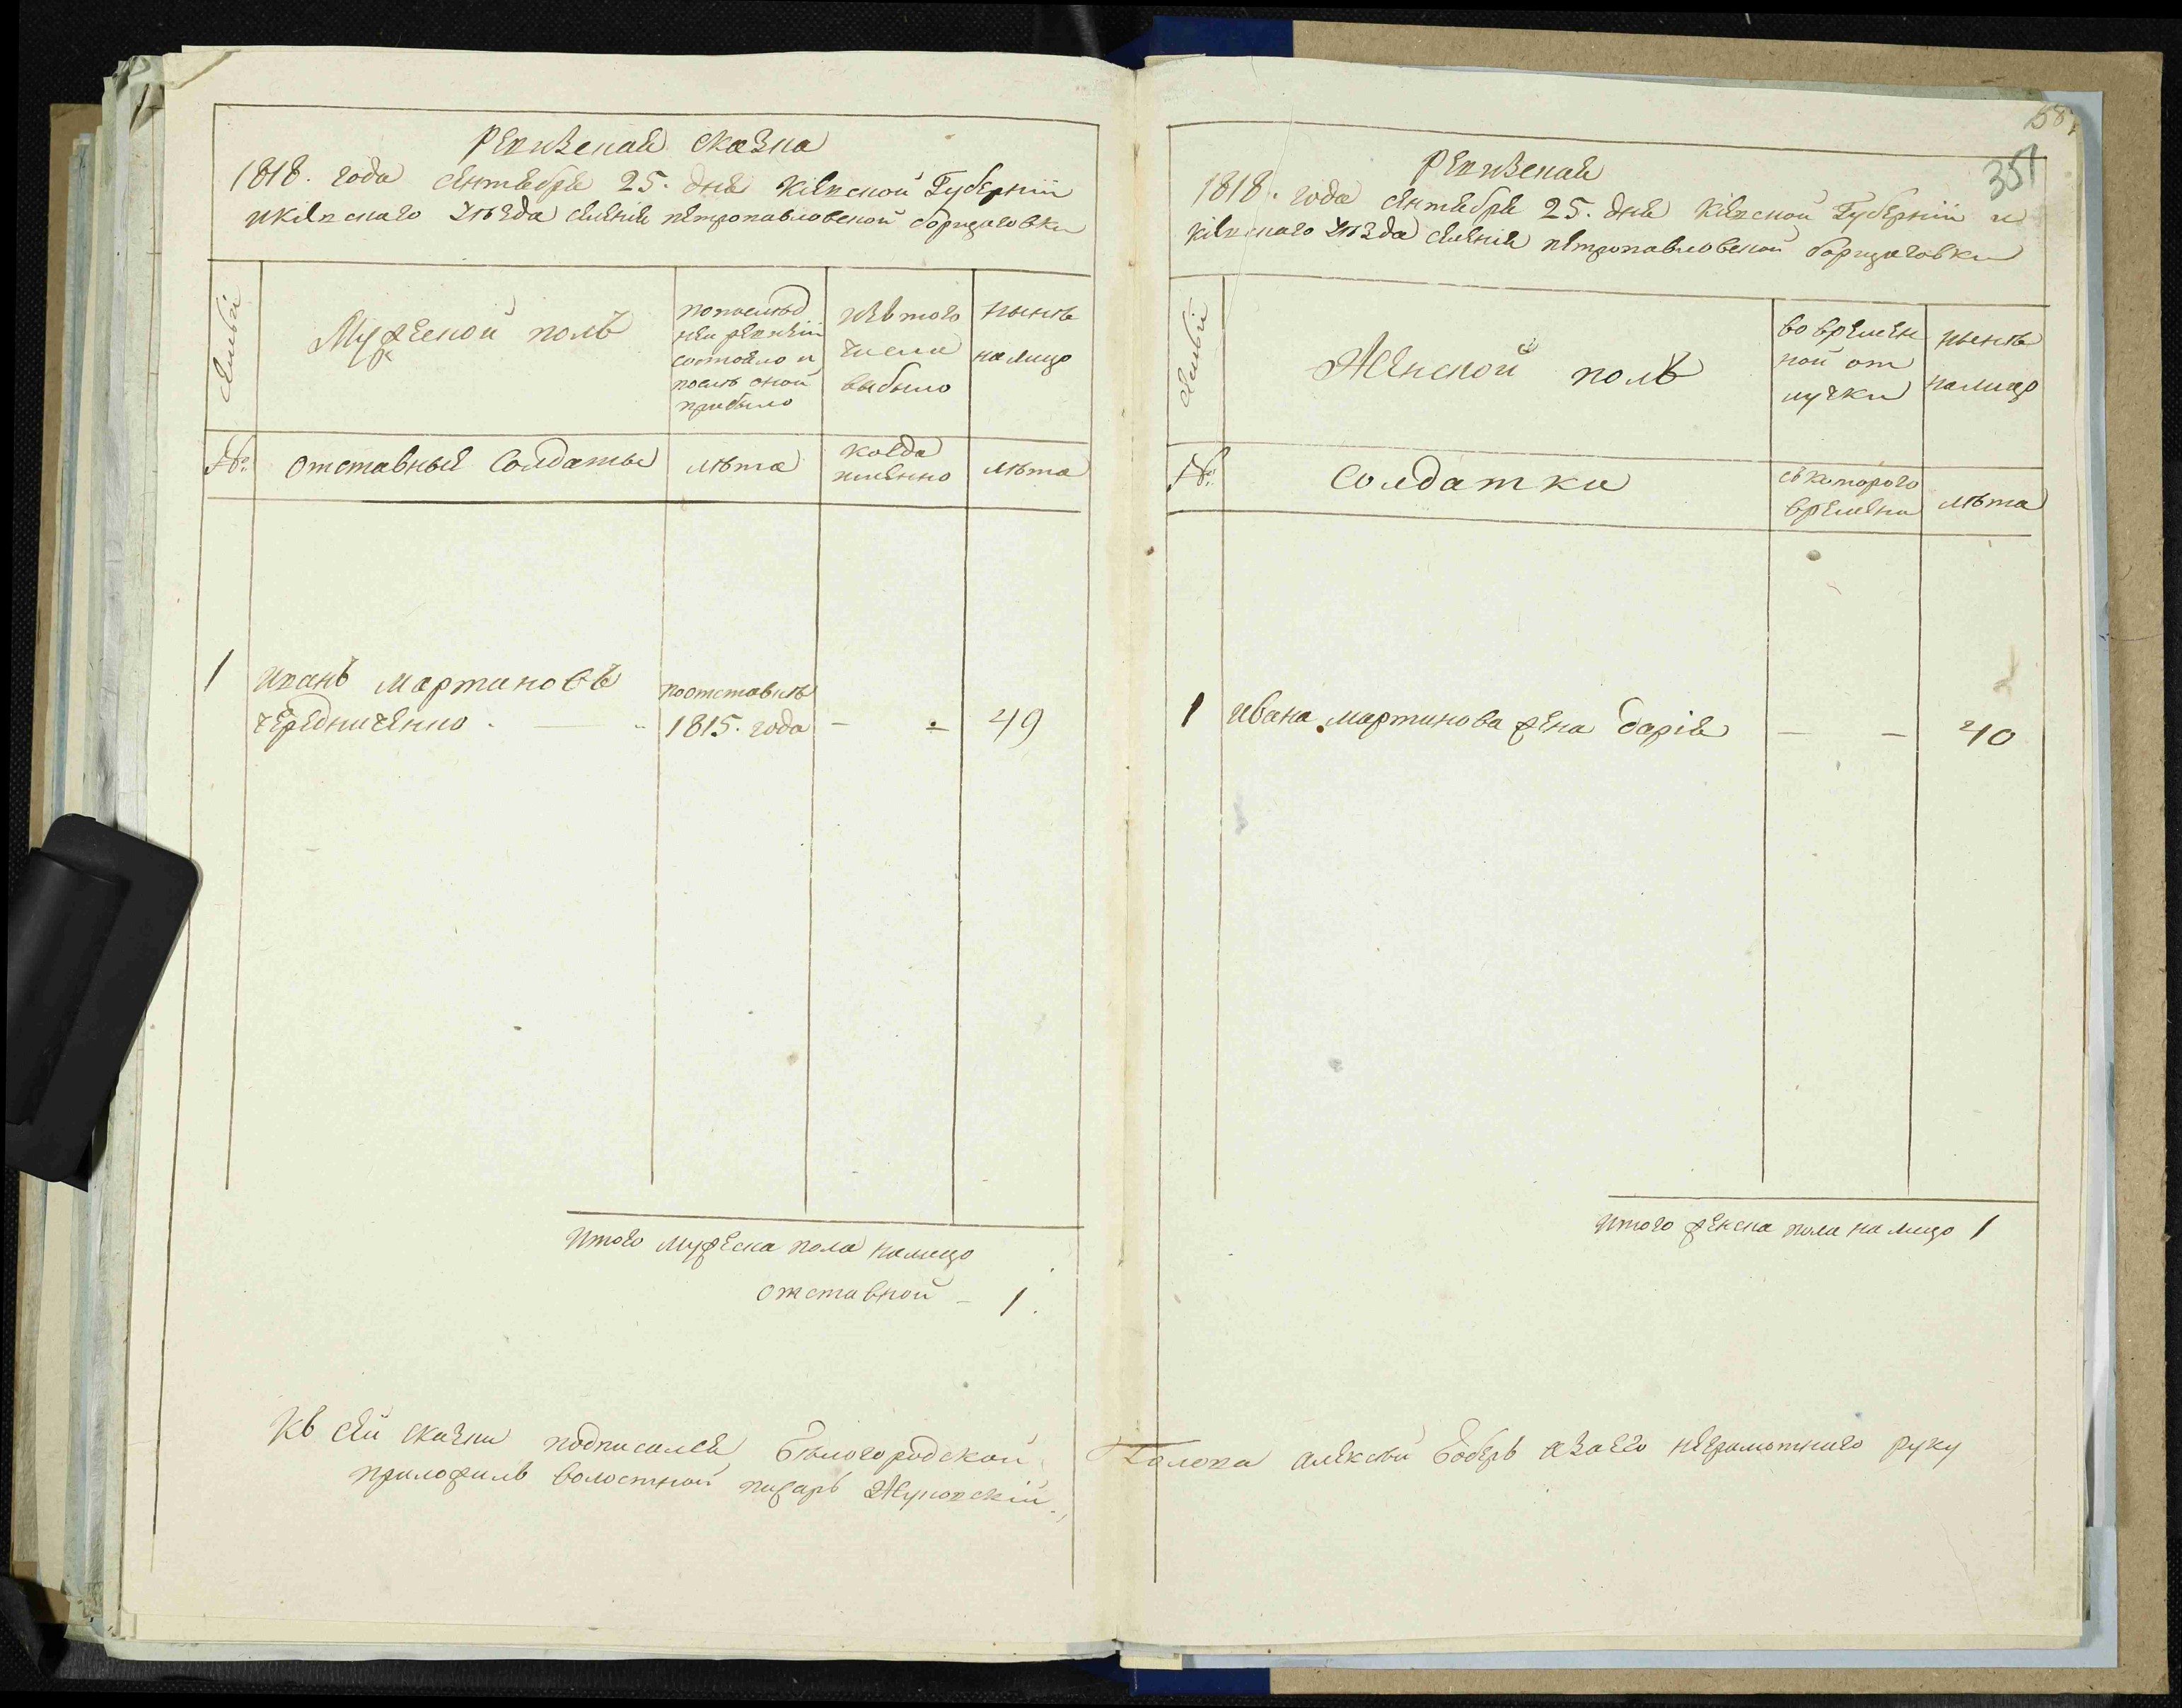 Ревизская сказка
1818. года сентября 25. дня Кіевской Губерніи
и Кіевскаго уѣзда селенія Петропавловской Борщаговки
Семьи
Мужеской полъ
по послѣд
ней ревизіи
состояло и
послѣ оной
прибыло
изъ того
числа
выбыло
нынѣ
на лицо
№:
Отставные Солдаты
лѣта
когда
именно
лѣта
1
Иванъ Мартиновъ
Чередниченко . — ..
по отставкѣ
1815. года
- -
49
Итого мужеска пола на лицо
отставной - 1.
Къ сей сказки подписался Бѣлогородской
приложилъ волостной писарь Жуковскій
58
357
Ревизская
1818. года сентября 25. дня Кіевской Губерніи и
Кіевскаго уѣзда селенія Петропавловской Борщаговки
Семьи
Женской полъ
во времен
ной от
лучки
нынѣ
на лицо
№:
Солдатки
съ которого
времени
лѣта
1
Ивана Мартинова жена Дарія
- -
40
Итого женска пола на лицо 1
Голова Алексѣй Боберъ а за его неграмотнаго руку